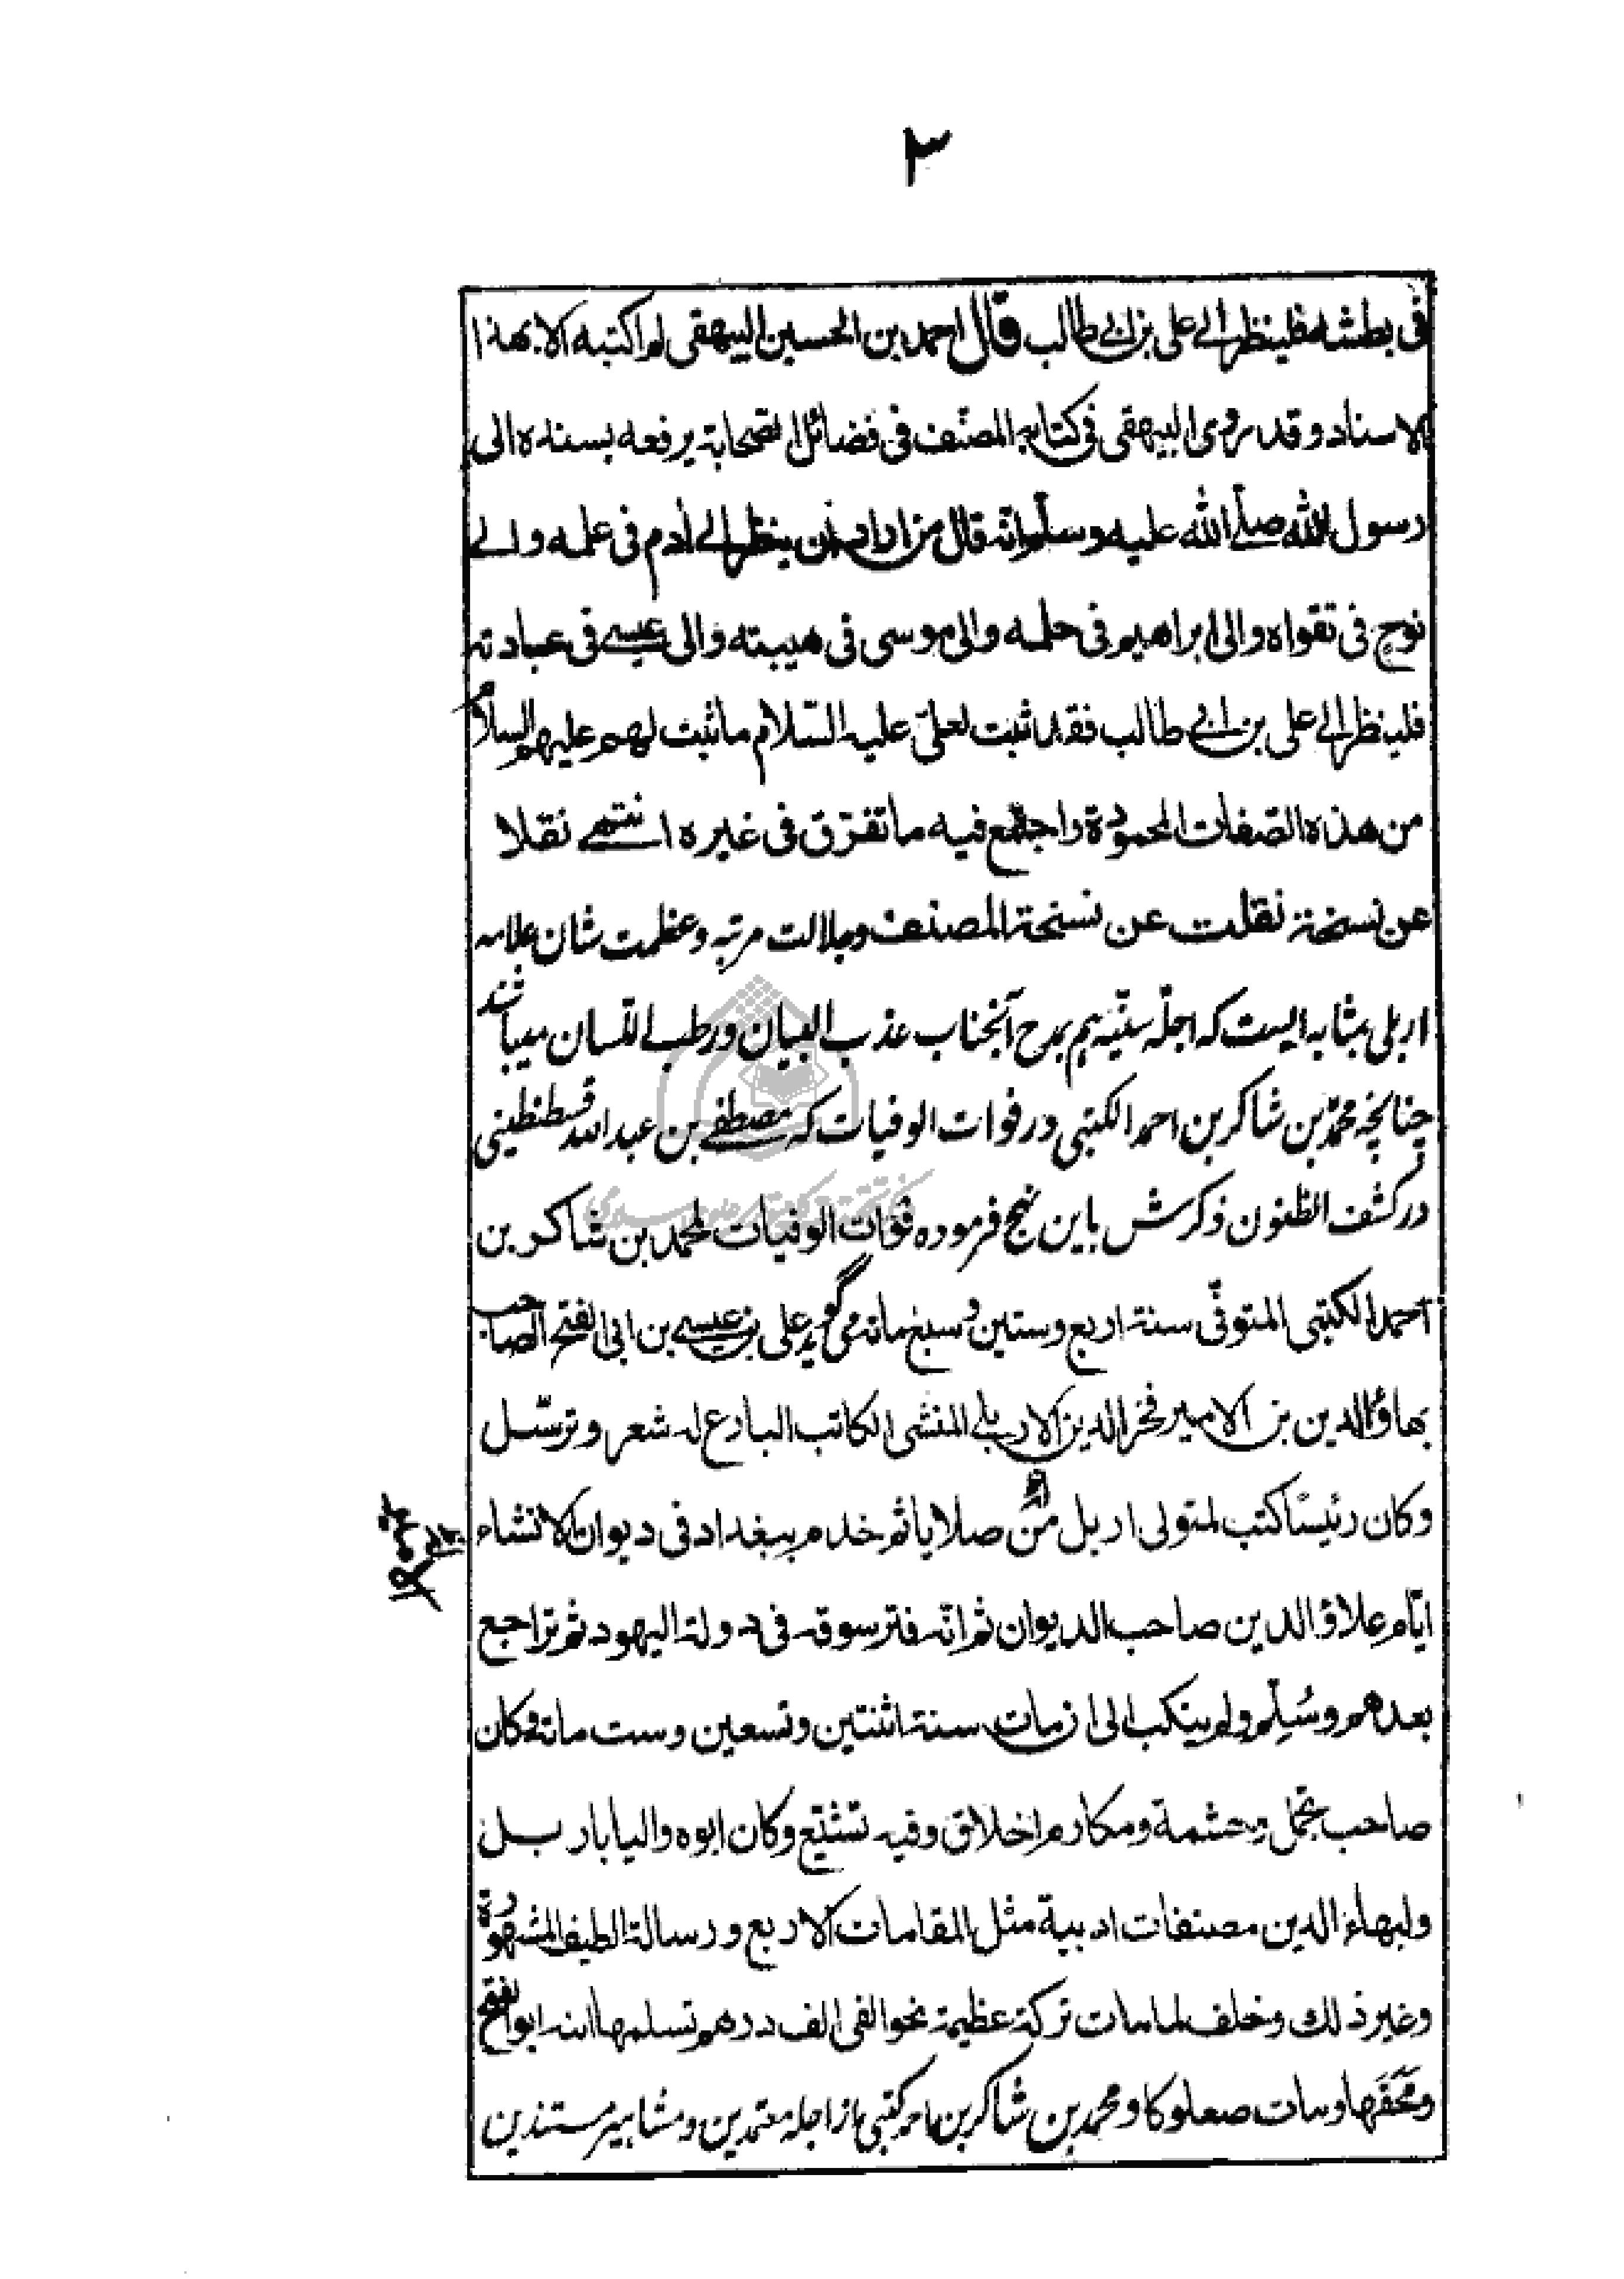 ٣
فى بطشه فلينظر الى على بن ابى طالب قال احمد بن الحسين البيهقى لم اكتبه الا بهذا
الاسناد و قد روى البيهقى فى كتابه المصنّف فى فضائل الصحابة يرفعه بسنده الى
رسول الله صلّى الله عليه وسلّم انّه قال من اراد أن ينظر الى أدم فى علمه والى
نوح فى تقواه والى ابراهيم فى حلمه والى موسى فى هيبته والى عيسى فى عبادته
فلينظر الى على بن ابى طالب فقد ثبت لعلىّ عليه السّلام ما ثبت لهم عليهم السلام
من هذه الصّفات المحمودة واجتمع فيه ما تفرّق فى غيره انتهى نقلا
عن نسخة نقلت عن نسخة المصنف وجلالت مرتبه وعظمت شان علامه
اربلى بمثابه ايست كه اجلّه سنّيه هم بمدح آنجناب عذب البيان ورطب اللّسان ميباشند
چنانچه محمّد بن شاكر بن احمد الكتبى در فوات الوفيات كه مصطفى بن عبد الله قسطنطينى
در كشف الظّنون ذكرش باين نهج فرموده فوات الوفيات لمحمد بن شاكر بن
احمد الكتبى المتوفّى سنة اربع وستين وسبع مائة مى گويد على بن عيسى بن ابى الفتح الصاحب
بهاؤ الدين بن الامير فخر الدين الاربلى المنشى الكاتب البارع له شعر وترسّل
وكان رئيسًا كتب لمتولى اربل من صلايا ثم خدم ببغداد فى ديوان الانشاء
ايّام علاؤ الدين صاحب الديوان ثم انّه فتر سوقه فى دولة اليهود ثم تراجع
بعدهم وسُلِّم ولم ينكب الى ان مات سنة اثنتين وتسعين وست مائة وكان
صاحب تجمّل وحشمة ومكارم اخلاق وفيه تشيّع وكان ابوه واليا باربل
ولبهاء الدين مصنفات ادبية مثل المقامات الاربع و رسالة الطيف المشهورة
وغير ذلك وخلف لما مات تركة عظيمة نحو الفى الف درهم تسلمها ابنه ابو الفتح
ومحقها ومات صعلوكا و محمد بن شاكر بن احمد كتبى از اجله معتمدين ومشاهير مستندين